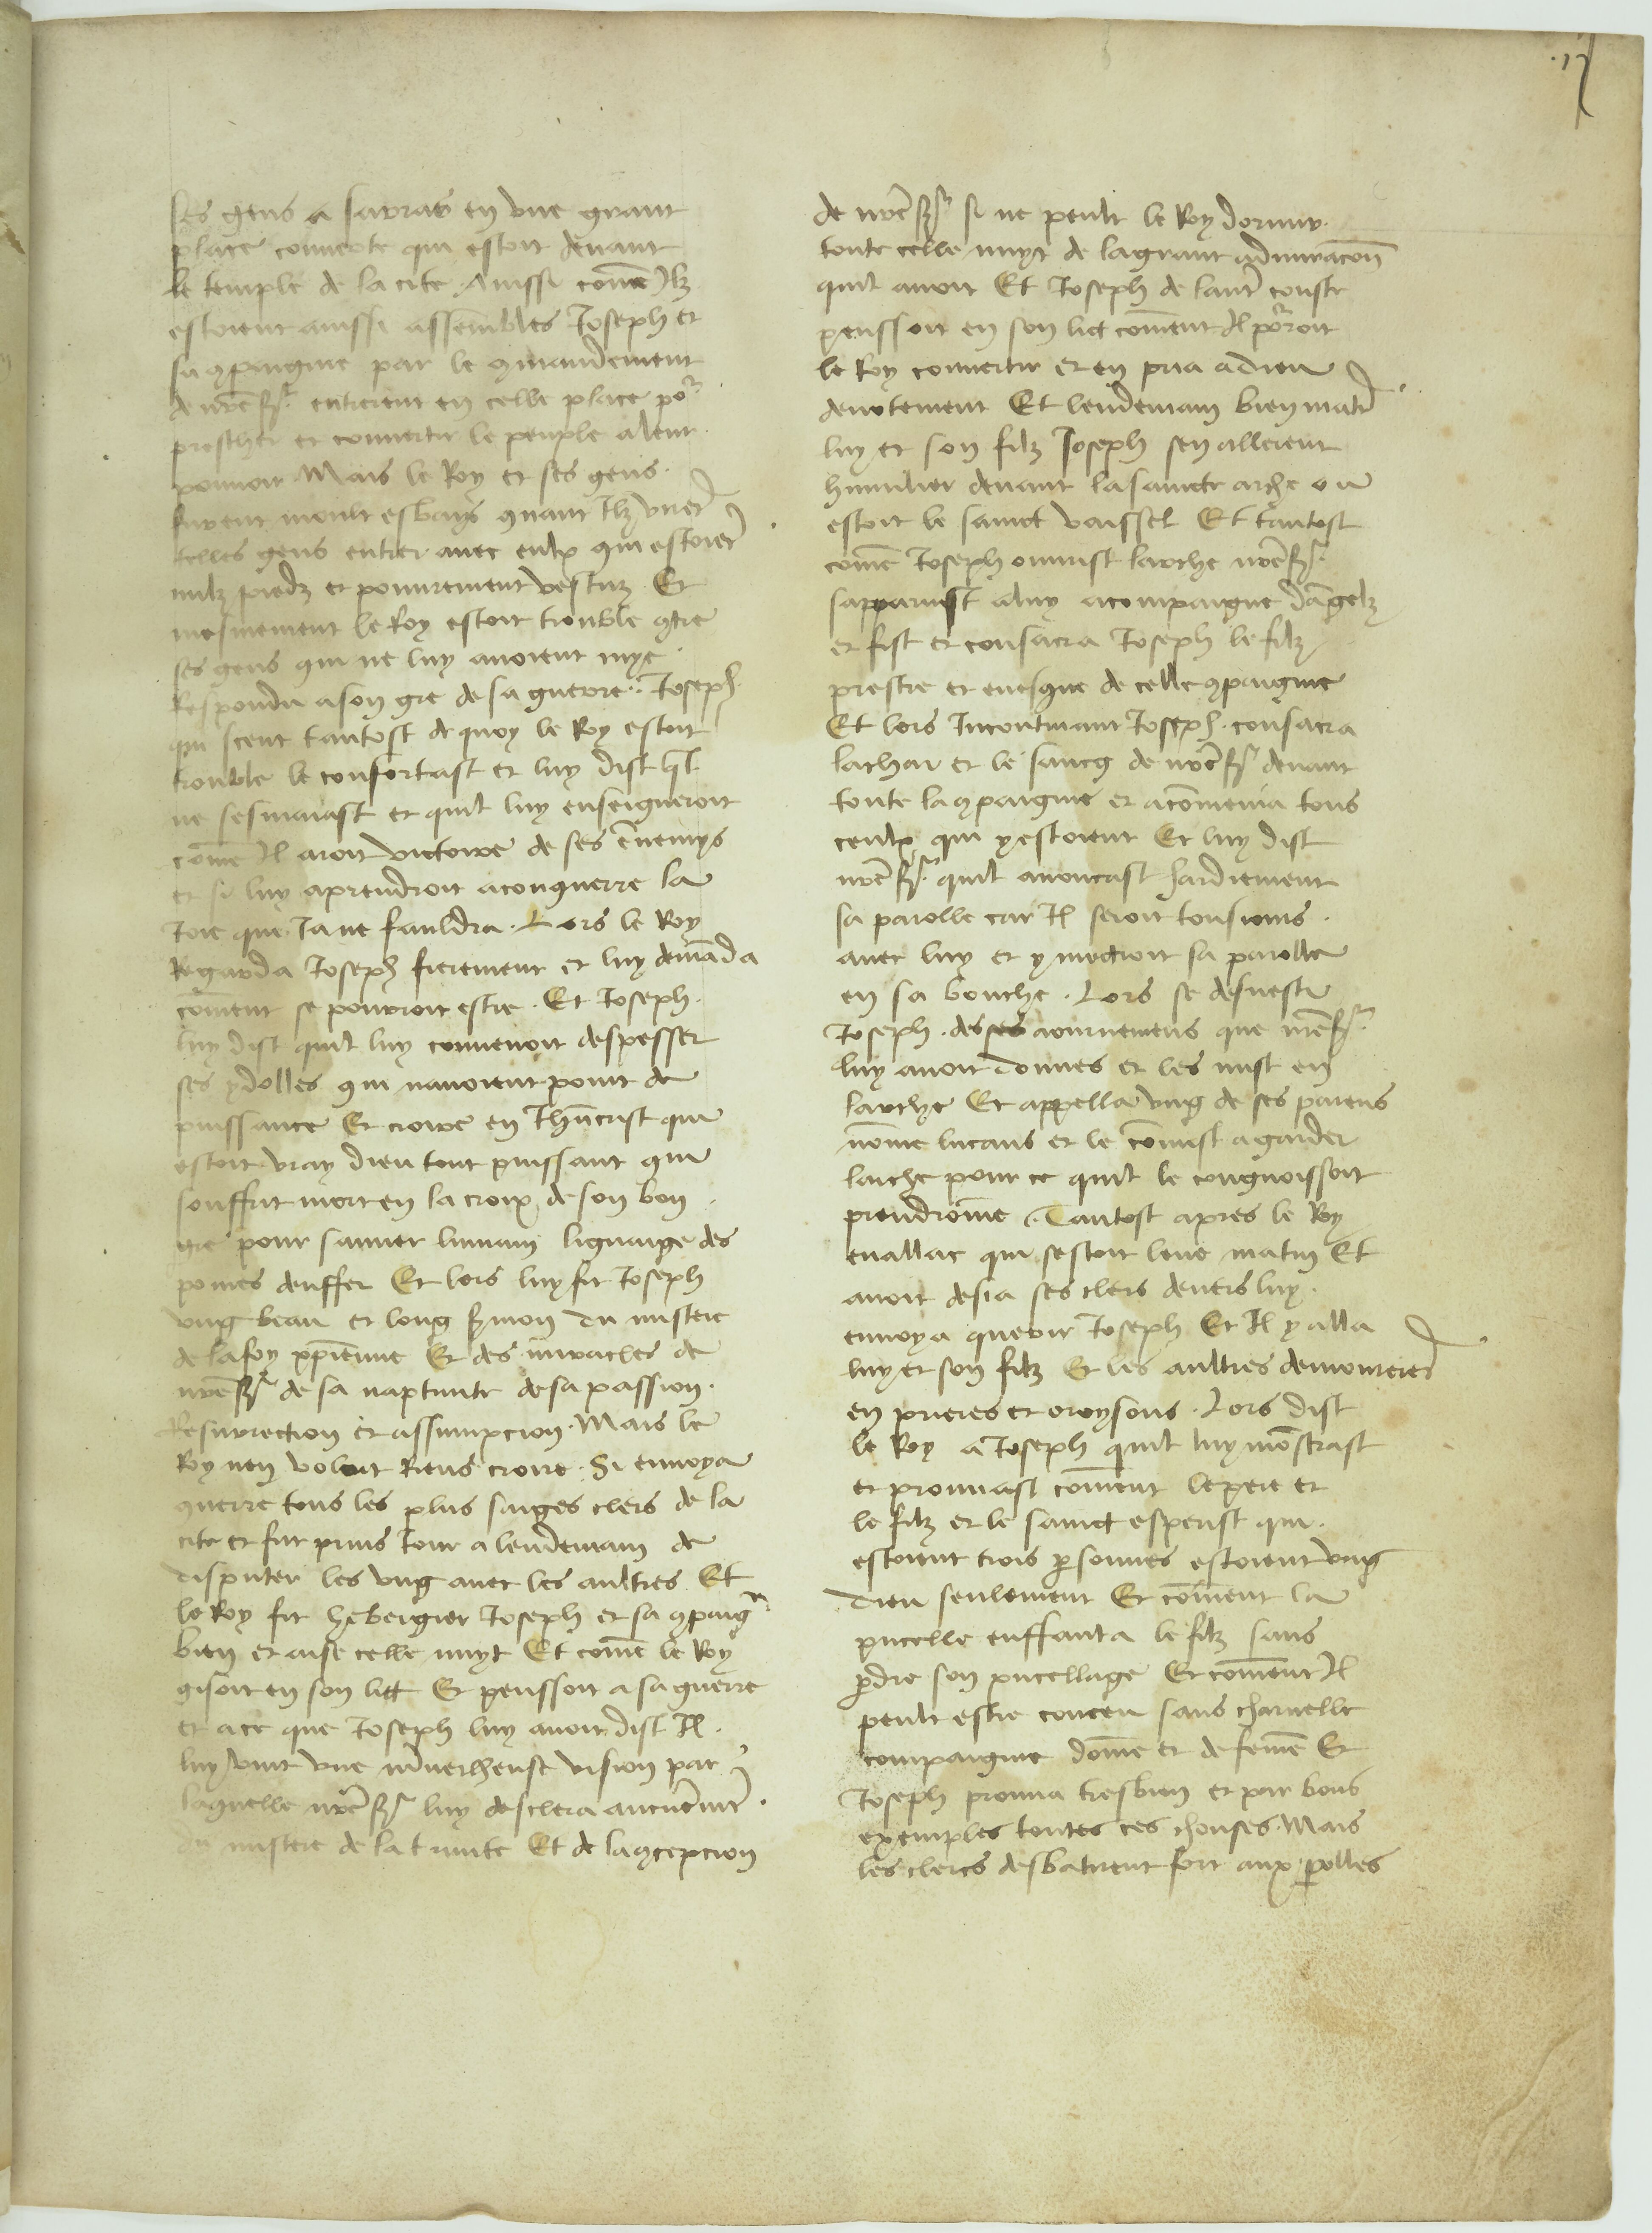 .17
ses gens a sarras en vne grant
place couuerte qui estoit deuant
le temple de la cite Auissi com̄e Ilz
estoient auissi assembles Joseph et
sa ꝯpaignie par le ꝯmandement
de nrē sr̄ entrerent en celle place por
prescher et conuertir le peuple a leur
pouuoir Mais le Roy et ses gens
furent moult esbays quant Ilz virēt
telles gens entrer auec eulx qui estoiēt
nulz piedz et pouurement vestuz Et
mesmement le Roy estoit trouble ꝯtre
ses gens qui ne luy auoient mye
Respondu a son gre de sa guerre. Joseph
qui sceut tantost de quoy le Roy estoit
trouble le confortast et luy dist ql̄
ne sesmaiast et quil luy enseigneroit
com̄e Il aroit victoire de ses en̄emys
et si luy aprendroit a conquerre la
Joie que Ja ne fauldra. Lors le Roy
Regarda Joseph fierement et luy demāda
com̄ent se pourroit estre. Et Joseph
luy dist quil luy conuenoit despesser
ses ydolles qui nauoient point de
puissance Et croire en Jhūcrist qui
estoit vray dieu tout puissant qui
souffrit mort en la croix de son bon
gre pour sauuer lumain lignaige des
poines denffer Et lors luy fit Joseph
vng beau et long s̄mon du mistere
de la foy xpīenne Et des miracles de
nrē sr̄ de sa naptiuite de sa passion
Resurrection et assumpcion. Mais le
Roy nen voloit Riens croire. Si enuoya
querre tous les plus saiges clers de la
cite et fut prins Jour a lendemain de
disputer les vng auec les aultres Et
le Roy fit hebergier Joseph et sa ꝯpaigne
bien et aise celle nuyt Et com̄e le Roy
gisoit en son litt Et penssoit a sa guerre
et a ce que Joseph luy auoit dist Il
luy vint vne m̄uerlheuse vision par
laquelle nrē sr̄ luy desclera aucunemēt
du mistere de la trinite Et de la ꝯcepcion
de nrē sr̄ si ne peult le Roy dormir
toute celle nuyt de la grant admiracōn
quil auoit Et Joseph de lautr̄ couste
penssoit en son lict com̄ent Il porroit
le Roy conuertir et en pria a dieu
deuotement Et lendemain bien matī
luy et son filz Joseph sen allerent
humilier deuant la saincte arche ou
estoit le sainct vaissel Et tantost
com̄e Joseph ouurist larche nrē sr̄
sapparust a luy acompaigne dāgelz
et fist et consacra Joseph le filz
prestre et euesque de celle ꝯpaignie
Et lors Incontinant Joseph consacra
lachar et le sancg de nrē sr̄ deuant
toute la ꝯpaignie et acōmenia tous
ceulx qui y estoient Et luy dist
nrē sr̄ quil anoncast hardiement
sa parolle car Il seroit tousiours
auec luy et y mectroit sa parolle
en sa bouche. Lors se desuesti
Joseph des ses aournemens que nrē sr̄
luy auoit donnes et les mist en
larche Et appella vng de ses parens
nōme lucans et le cōmist a garder
larche pour ce quil le congnoissoit
preudrōme. Tantost apres le Roy
euallac qui sestoit leue matin Et
auoit desia ses clers deuers luy
enuoya querir Joseph Et Il y alla
luy et son filz Et les aultres demourerēt
en prieres et oroysons. Lors dist
le Roy a Joseph quil luy mōstrast
et prouuast com̄ent le pere et
le filz et le sainct esperist qui
estoient trois p̄sonnes estoient vng
dieu seulement Et com̄ent la
pucelle enffanta le filz sans
p̄dre son pucellage Et com̄ent Il
peult estre conceu sans charnelle
compaignie dom̄e et de fem̄e Et
Joseph prouua tresbien et par bons
exemples toutes ces chouses. Mais
les clercs desbatirent fort aux p̄olles